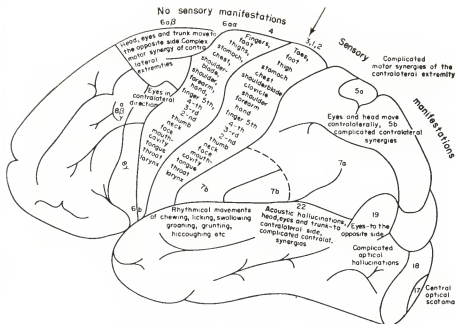 No sensory manifestations
6aβ
6aα
4
3,1,2
Sensory
manifestations
Head, eyes and trunk move to
the opposite side. Complex
motor synergy of contra
lateral
extremities
Eyes in
contralateral
direction
α
8β
γ
8γ
6b
Fingers,
foot
thighs,
stomach,
chest,
shoulder-
blade,
shoulder
forearm,
hand,
finger 5th,
4-th
3-rd
2-nd
thumb
neck
face
mouth-
cavity
tongue
throat
larynx
Toes,
foot
thigh
stomach
chest
shoulderblade
clavicle
shoulder
forearm
hand
finger 5th
4-th
3-rd
2-nd
thumb
neck
face
mouth-
cavity
tongue
throat
larynx
Complicated
motor synergies of the
contralateral extremity
5a
Eyes and head move
contralaterally, 5b
complicated contralateral
synergies
7a
7b
7b
22
Rhythmical movements
of chewing, licking, swallowing
groaning, grunting,
hiccoughing etc
Acoustic hallucinations,
head, eyes and trunk-to
contralateral side,
complicated contralat.
synergios
19
Eyes-to the
opposite side
Complicated
optical
hallucinations
18
17
Central
optical
scotoma